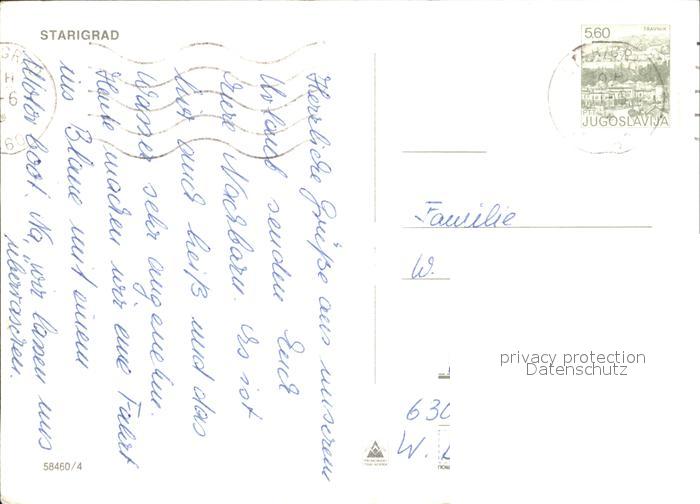 STARIGRAD
Herzliche Grüße aus unserem
Urlaub senden Euch
Eure Nachbarn. Es ist
hier auch heiß und das
Wasser sehr angenehm.
Heute machen wir eine Fahrt
ins Blaue mit einem
Motorboot. Na, wir lassen uns
überraschen.
58460/4
5.60
TRAVNIK
JUGOSLAVIJA
Familie
W.
privacy protection
Datenschutz
630
W.